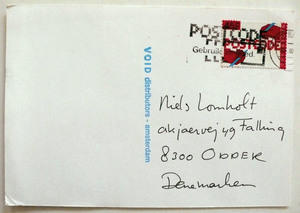 POSTCODE
POSTCODE
Gebruik
VOID distributors - amsterdam
Niels Lomholt
akjaervej 49 Falling
8300 ODDER
Denemarken